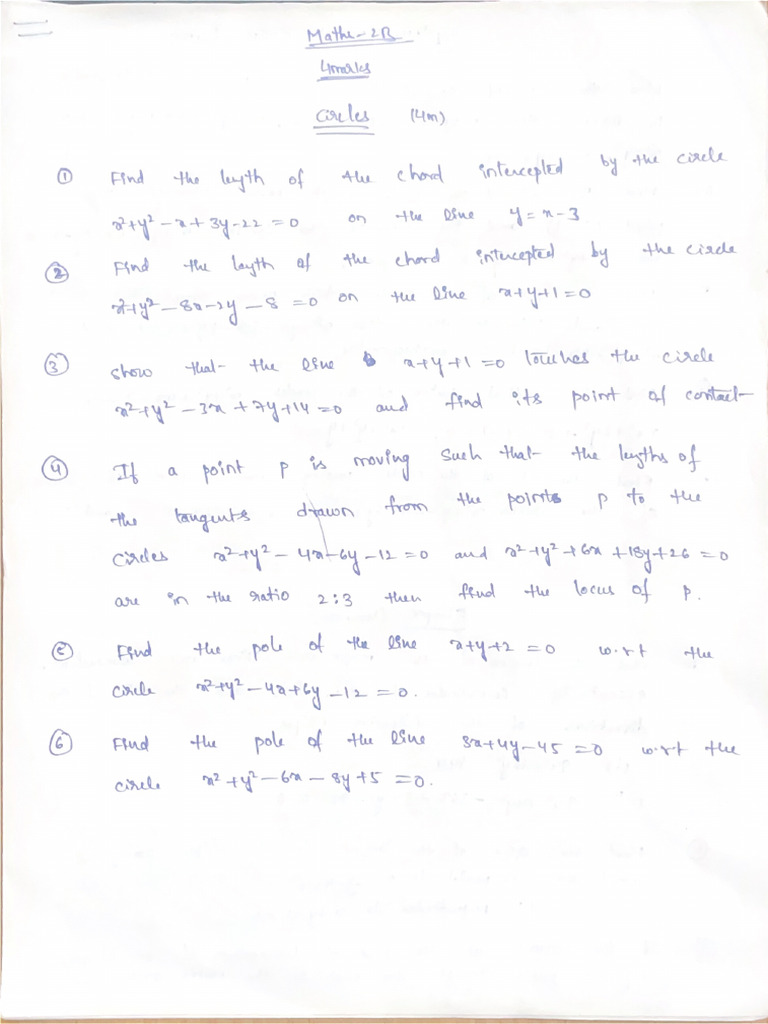 Maths-2B
4marks
Circles (4m)
① Find the length of the chord intercepted by the circle
x²+y²-x+3y-22=0 on the line y=x-3
② Find the length of the chord intercepted by the circle
x²+y²-8x-2y-8=0 on the line x+y+1=0
③ Show that the line x+y+1=0 touches the circle
x²+y²-3x+7y+14=0 and find its point of contact-
④ If a point p is moving such that the lengths of
the tangents drawn from the points p to the
circles x²+y²-4x-6y-12=0 and x²+y²+6x+18y+26=0
are in the ratio 2:3 then find the locus of p.
⑤ Find the pole of the line x+y+2=0 w.r.t the
circle x²+y²-4x+6y-12=0.
⑥ Find the pole of the line 3x+4y-45=0 w.r.t the
circle x²+y²-6x-8y+5=0.